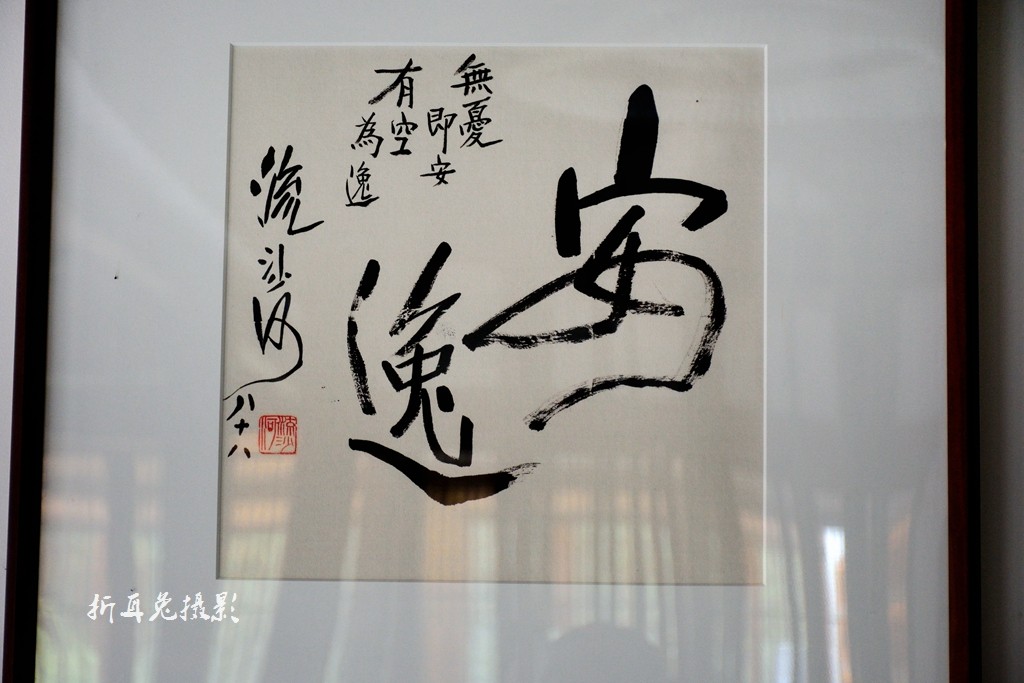 安逸
無憂
即安
有空
為逸
流沙河
八十八
流沙河
折耳兔摄影